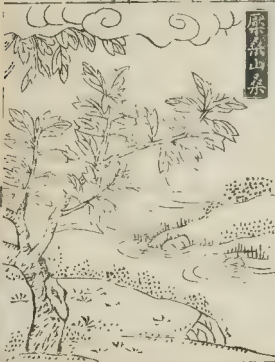 檿桑山桑